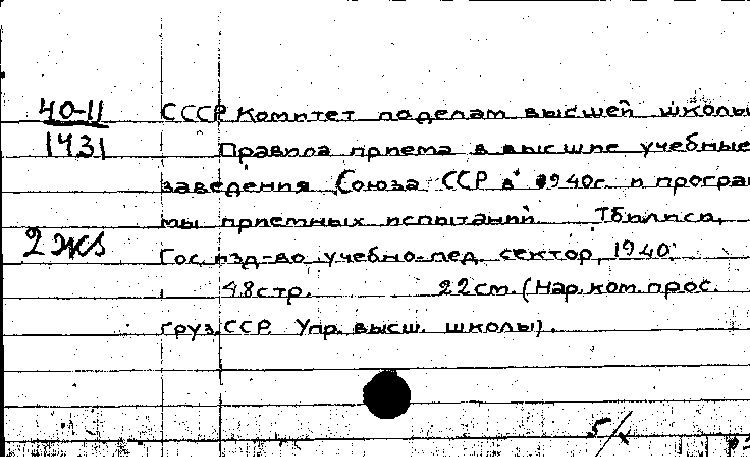 40-11
1431
СССР Комитет по делам высшей школы
Правила приема в высшие учебные
заведения Союза ССР в 1940г. и програм
мы приемных испытаний. Тбилиси,
2 экз
Гос. изд-во учебно-пед. сектор, 1940.
48 стр. 22 см. (Нар. ком. прос.
груз. ССР. Упр. высш. школы).